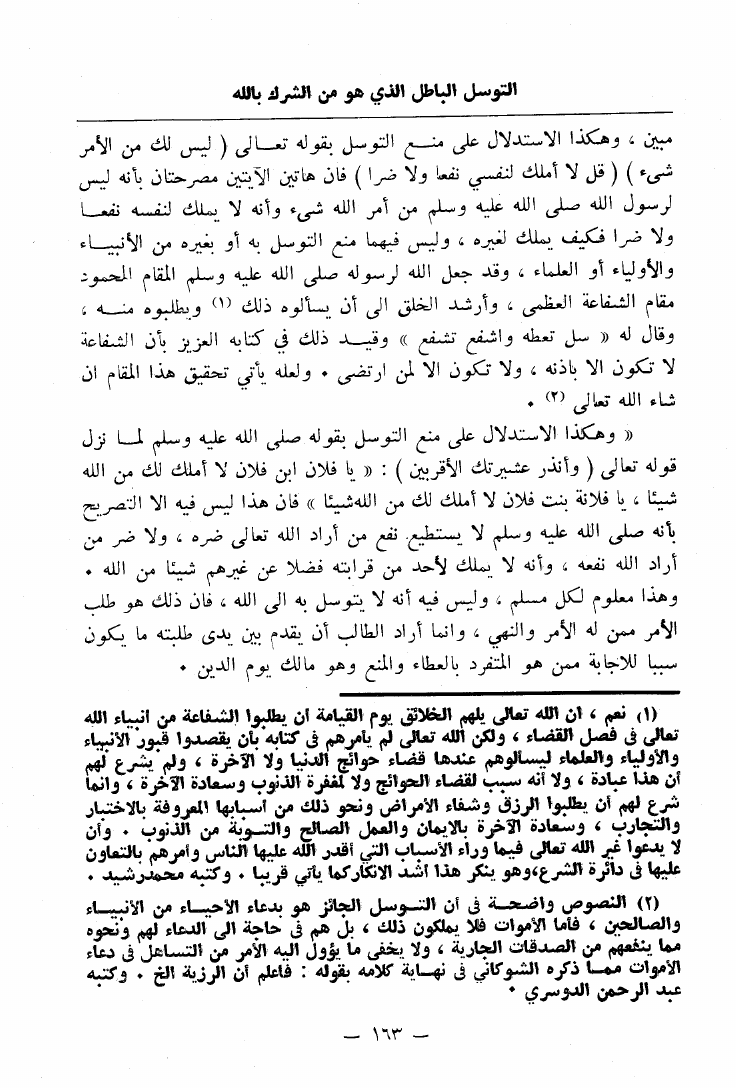 التوسل الباطل الذي هو من الشرك بالله
مبين ، وهكذا الاستدلال على منع التوسل بقوله تعالى ( ليس لك من الأمر
شىء ) ( قل لا أملك لنفسي نفعا ولا ضرا ) فان هاتين الآيتين مصرحتان بأنه ليس
لرسول الله صلى الله عليه وسلم من أمر الله شىء وأنه لا يملك لنفسه نفعا
ولا ضرا فكيف يملك لغيره ، وليس فيهما منع التوسل به أو بغيره من الأنبياء
والأولياء أو العلماء ، وقد جعل الله لرسوله صلى الله عليه وسلم المقام المحمود
مقام الشفاعة العظمى ، وأرشد الخلق الى أن يسألوه ذلك (١) ويطلبوه منه ،
وقال له « سل تعطه واشفع تشفع » وقيد ذلك في كتابه العزيز بأن الشفاعة
لا تكون الا باذنه ، ولا تكون الا لمن ارتضى . ولعله يأتي تحقيق هذا المقام ان
شاء الله تعالى (٢) .
« وهكذا الاستدلال على منع التوسل بقوله صلى الله عليه وسلم لما نزل
قوله تعالى ( وأنذر عشيرتك الأقربين ) : « يا فلان ابن فلان لا أملك لك من الله
شيئا ، يا فلانة بنت فلان لا أملك لك من الله شيئا » فان هذا ليس فيه الا التصريح
بأنه صلى الله عليه وسلم لا يستطيع نفع من أراد الله تعالى ضره ، ولا ضر من
أراد الله نفعه ، وأنه لا يملك لأحد من قرابته فضلا عن غيرهم شيئا من الله .
وهذا معلوم لكل مسلم ، وليس فيه أنه لا يتوسل به الى الله ، فان ذلك هو طلب
الأمر ممن له الأمر والنهي ، وانما أراد الطالب أن يقدم بين يدى طلبته ما يكون
سببا للاجابة ممن هو المتفرد بالعطاء والمنع وهو مالك يوم الدين .
(١) نعم ، ان الله تعالى يلهم الخلائق يوم القيامة ان يطلبوا الشفاعة من انبياء الله
تعالى فى فصل القضاء ، ولكن الله تعالى لم يأمرهم فى كتابه بأن يقصدوا قبور الأنبياء
والأولياء والعلماء ليسألوهم عندها قضاء حوائج الدنيا ولا الآخرة ، ولم يشرع لهم
أن هذا عبادة ، ولا أنه سبب لقضاء الحوائج ولا لمغفرة الذنوب وسعادة الآخرة ، وانما
شرع لهم أن يطلبوا الرزق وشفاء الأمراض ونحو ذلك من أسبابها المعروفة بالاختبار
والتجارب ، وسعادة الآخرة بالايمان والعمل الصالح والتوبة من الذنوب . وأن
لا يدعوا غير الله تعالى فيما وراء الأسباب التي أقدر الله عليها الناس وأمرهم بالتعاون
عليها فى دائرة الشرع،وهو ينكر هذا أشد الانكار كما يأتي قريبا . وكتبه محمد رشيد .
(٢) النصوص واضحة فى أن التوسل الجائز هو بدعاء الأحياء من الأنبياء
والصالحين ، فأما الأموات فلا يملكون ذلك ، بل هم فى حاجة الى الدعاء لهم ونحوه
مما ينفعهم من الصدقات الجارية ، ولا يخفى ما يؤول اليه الأمر من التساهل فى دعاء
الأموات مما ذكره الشوكاني فى نهاية كلامه بقوله : فاعلم أن الرزية الخ . وكتبه
عبد الرحمن الدوسري .
— ١٦٣ —